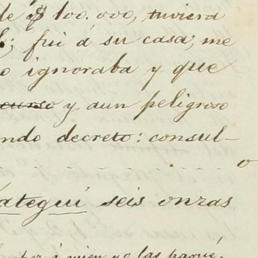 de $100.000, tuviera
; fui á su casa; me
o ignoraba y que
y aun peligroso
ndo decreto: consul-
o
ategui seis onzas
á quien no las pagué,